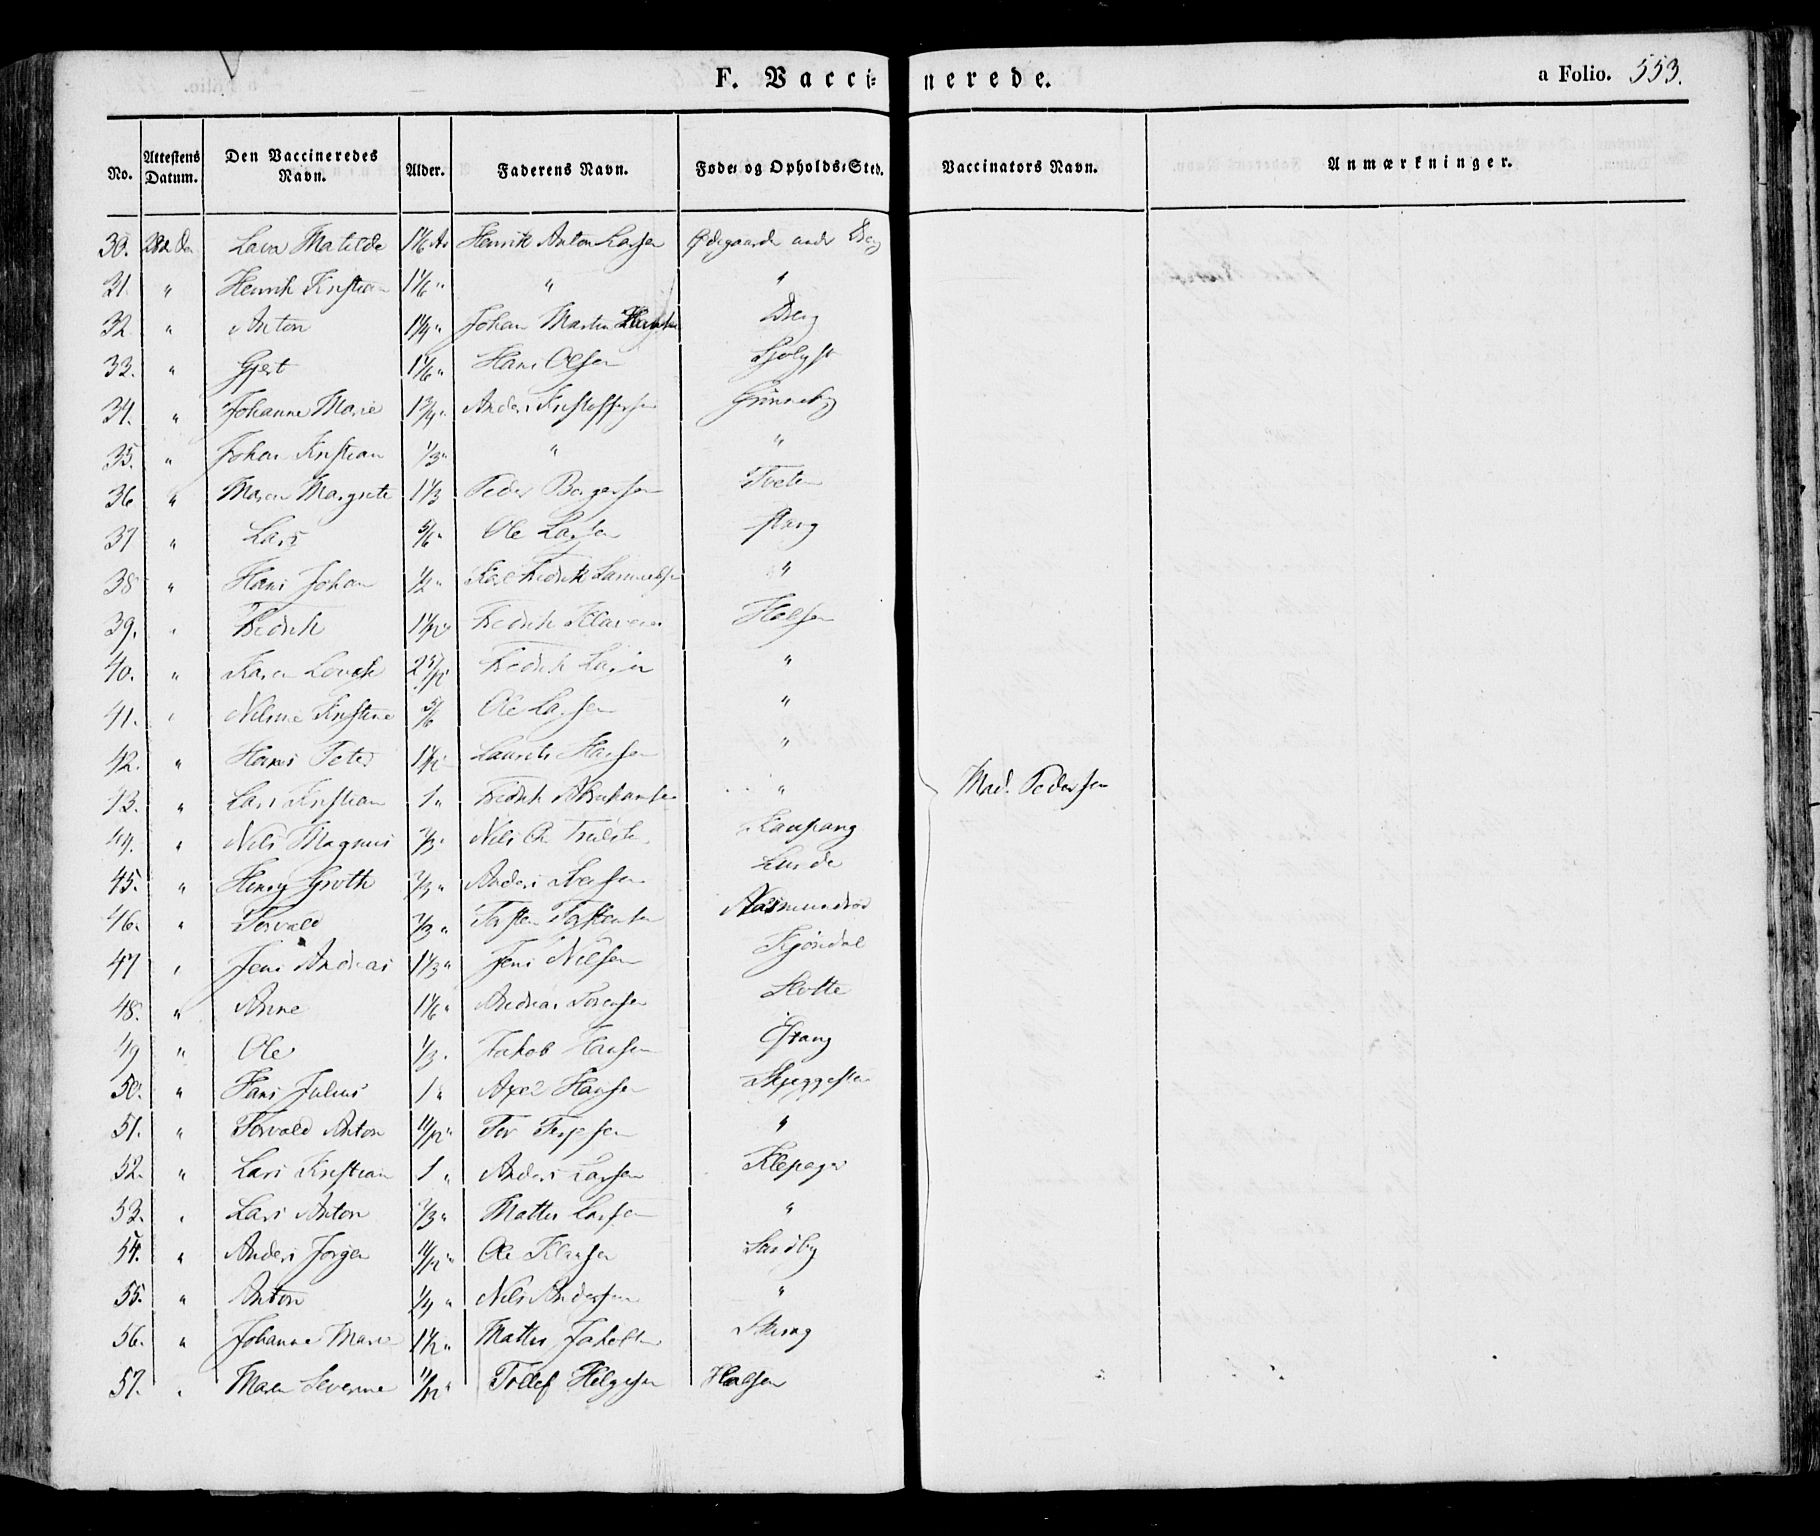 F. Vaccinerede.
a Folio. 553.
No. Attestens Datum. Den Vaccineredes Navn. Alder. Faderens Navn. Føde- og Opholds-Sted. Vaccinators Navn. Anmærkninger.
30. Matilde 1 1/6 Henrik Anton Larsen Ødegaarde under Berg
31. " Henrik Kristian 1 1/6 " " "
32 " Anton 1 1/4 " Johan Martin Berg
33. " Gjert 1 1/6 " Hans Olsen
34. " Johanne Marie 1 3/4 " Anders Kristoffersen Grønneby
35. " Johan Kristian 1/3 " " "
36 " Maren Margrete 1 1/3 Peder Borgersen Tveten
37 " Lars 5/6 " Ole Larsen
38 " Hans Johan 1/2 " Karl Fredrik "
39. " Fredrik Fredrik Halsen
40. " Karen 2 5/12 Fredrik Larsen "
41. " Kristine 5/6 Ole Larsen "
42. " Hans Peter Laurits Hansen "
43. " Lars Kristian 1 " Fredrik Abrahamsen "
44. " Nils Magnus 2/3 " Nils Kaupang
45. " Henry Groth 2/3 " Anders Lunde
46. " Torvald 2/3 " Torsten Torstensen
47 " Jens Andreas 1 1/3 " Jens Nilsen
48. " Anne 1 1/6 " Andreas Sørensen Hotte
49 " Ole 1/3 " Jakob Hansen Østang
50. " Hans Julius 1 " Axel Hansen Skjeggesten
51. " Torvald Anton 11/12 " Tor Terjesen "
52. " Lars Kristian 1 " Anders Larsen Klepager
53. " Lars Anton 2/3 " Matties Larsen "
54. " Anders Jørgen 11/12 " Ole Klausen Sandby
55. " Anton 1/4 " Nils Andersen "
56. " Johanne Marie 1 1/2 " Matties Jakobsen
57. " Maren Severine 11/12 " Tollef Helgesen Halsen
Mad. Pedersen